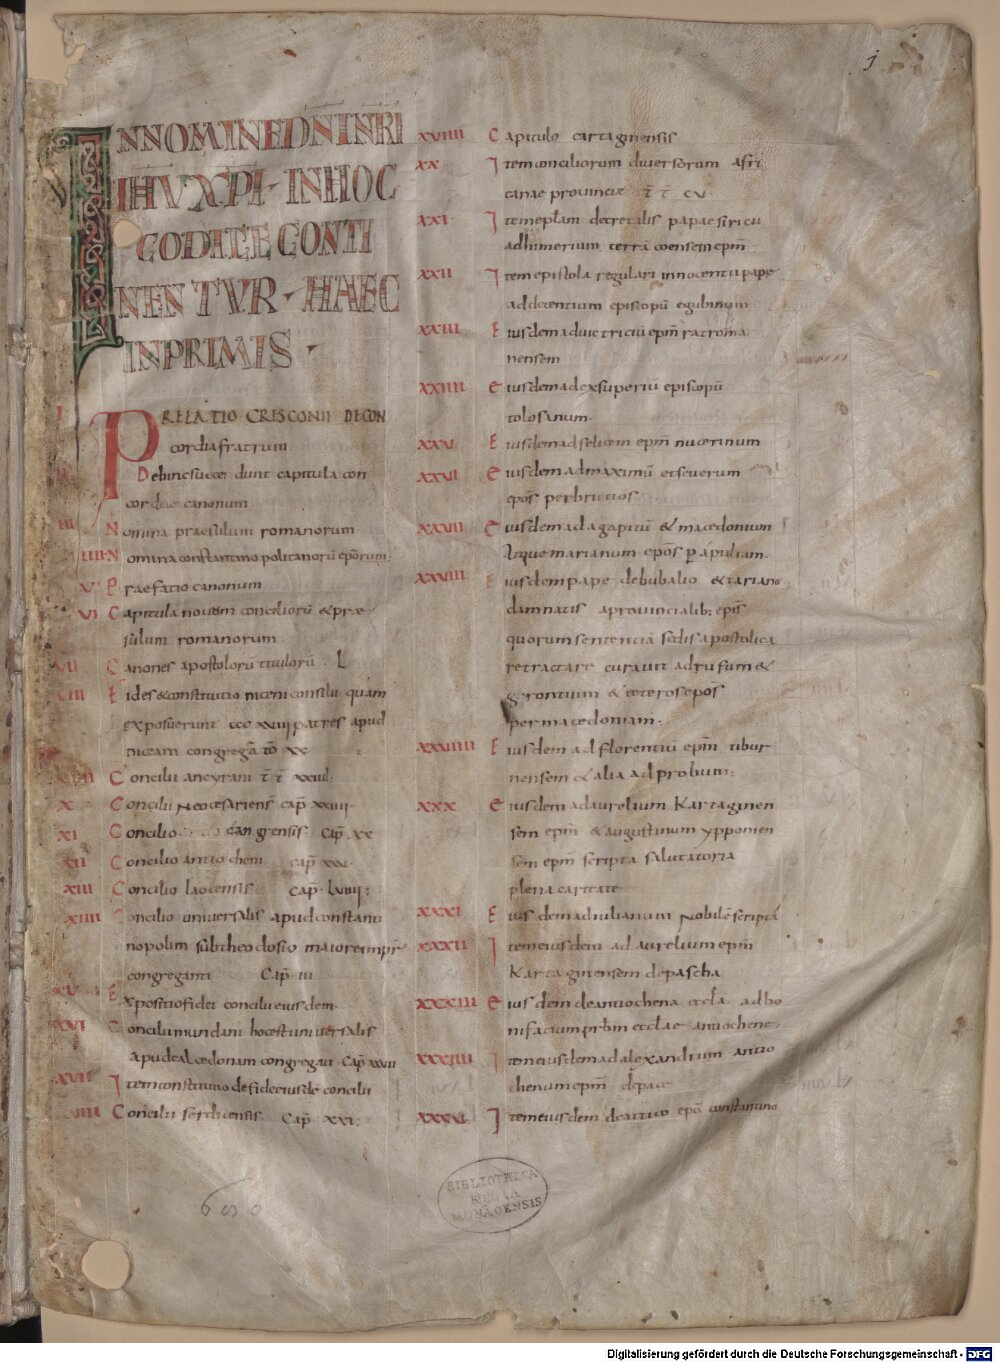 IN NOMINE DNI NRI
IHU XPI · IN HOC
CODICE CONTI
NENTUR · HAEC
IN PRIMIS ·
I PRELATIO CRESCONII DE CON
cordia fratrum
Debinc succedunt capitula con
cordiae canonum
III Nomina praesulum romanorum
IIII Nomina constantinopolitanorū eporum
V Praefatio canonum
VI Capitula novem conciliorū & prae
sulum romanorum
VII Canones apostolorū titulorū L
VIII Fides & constitutio niceni consilii quam
exposuerunt cccxviii patres apud
niceam congregati tt xx
Concilii ancyrani tt xxiiii
X Concilii Neocesariens cap xxiiii
XI Concilio gangrensis cap xx
XII Concilio antiocheni cap xxv
XIII Concilio laocensis cap lviiii
XIIII Concilio universalis apud constanti
nopolim sub theodosio maiore impr
congregati Cap iii
XV Expositio fidei concilii eiusdem
XVI Concilii mundani hoc est universalis
apud calcedonam congregati cap xxvii
XVII Item constitutio de fide eiusdē concilii
XVIII Concilii serdicensis cap xxi
XVIIII Capitulo cartaginensis
XX Item conciliorum diversorum afri
canae provinciae tt cv
XXI Item eplam decretalis papae siricii
ad himerium terraconensem epm
XXII Item epistola regulari innocentii pape
ad decentium episcopū egubinum
XXIII Eiusdem ad victriciū epm ratroma
nensem
XXIIII Eiusdem ad exsuperiū episcopū
tolosanum
XXV Eiusdem ad felicem epm nucerinum
XXVI Eiusdem ad maximū et severum
epos per brittios
XXVII Eiusdem ad agapitū & macedonium
Atque marianum epos p apuliam
XXVIII Eiusdem pape de bubalio & tariano
damnatis a provincialib: epis
quorum sententiā sedis apostolica
retractare curavit ad rufum &
gerontium & ceteros epos
per macedoniam
XXVIIII Eiusdem ad florentiū epm tibur
nensem & alia ad probum
XXX Eiusdem ad aurelium Kartaginen
sem epm & augustinum ypponien
sem epm scripta salutatoria
plena caritate
XXXI Eiusdem ad iulianum Nobilē scripta
XXXII Item eiusdem ad aurelium epm
Kartaginensem de pascha
XXXIII Eiusdem de antiochena eccla ad bo
nifacium prbm ecclae antiochene
XXXIIII Item eiusdem ad alexandrum antio
chenum epm de pace
XXXV Item eiusdem de attico epo constantino
BIBLIOTHECA
REGIA
MONACENSIS
Digitalisierung gefördert durch die Deutsche Forschungsgemeinschaft - DFG